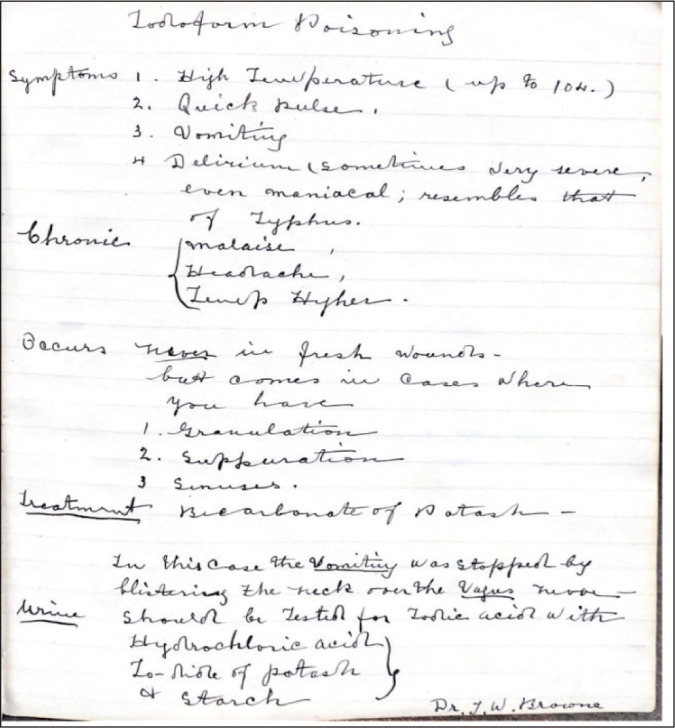 Iodoform Poisoning
Symptoms 1. High Temperature (up to 104.)
2. Quick pulse.
3. Vomiting
4 Delirium (sometimes very severe,
even maniacal; resembles that
of Typhus.
Chronic { malaise,
Headache,
Temp Higher.
Occurs never in fresh wounds -
but comes in cases where
you have
1. Granulation
2. Suppuration
3 Sinuses.
Treatment Bicarbonate of Potash -
In this case the Vomiting was stopped by
blistering the neck over the Vagus nerve -
Urine should be Tested for Iodic acid with
Hydrochloric acid }
Io-dide of potash
& Starch
Dr. J. W. Browne